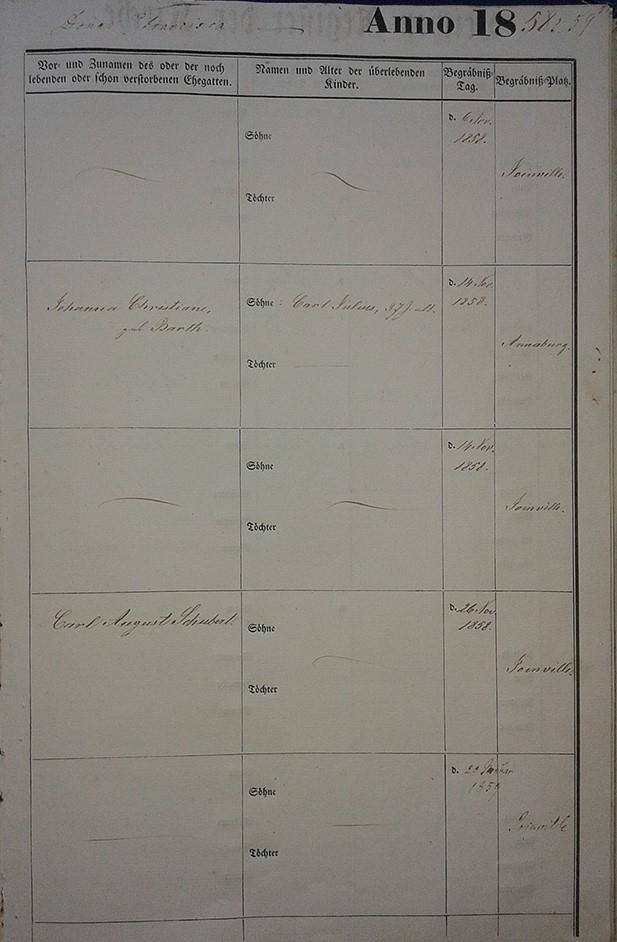 Dona Francisca Anno 1858 & 59
Vor- und Zunamen des oder der noch
lebenden oder schon verstorbenen Ehegatten.
Namen und Alter der überlebenden
Kinder.
Begräbniß-
Tag.
Begräbniß-Platz.
Söhne
Töchter
d. 6 Nov.
1858.
Joinville.
Johanna Christiane,
geb Barth.
Söhne: Carl Julius, 37 J. alt.
Töchter
d. 14 Nov.
1858.
Annaburg.
Söhne
Töchter
d. 14 Nov.
1858.
Joinville.
Carl August Schubert.
Söhne
Töchter
d. 26 Nov.
1858.
Joinville.
Söhne
Töchter
d. Januar
1859
Joinville